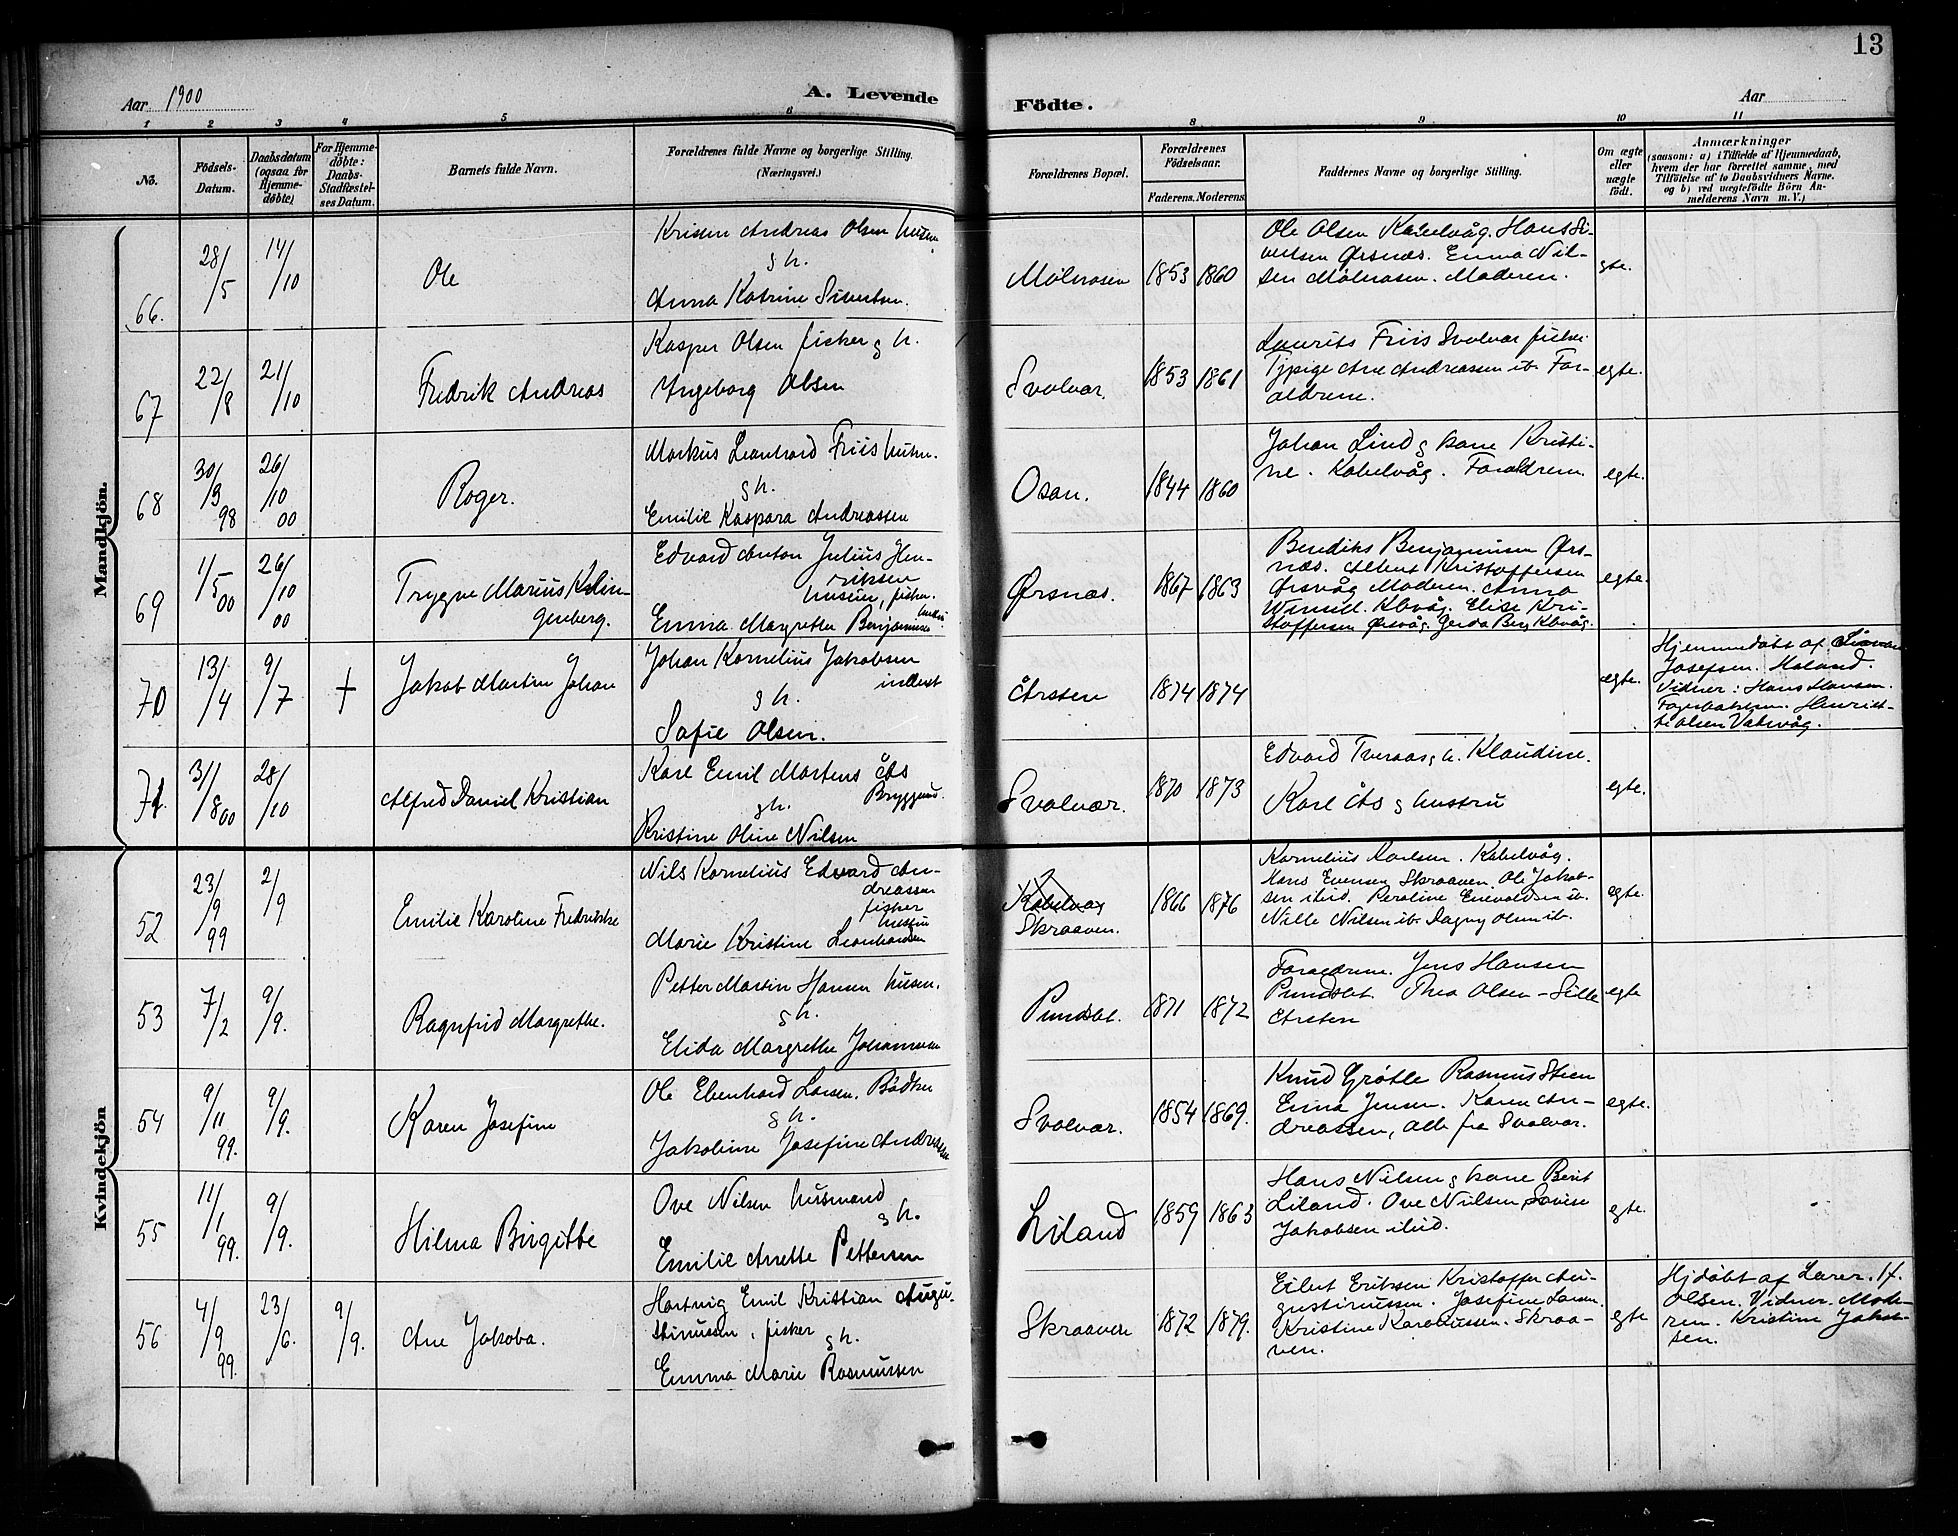 13
Aar 1900
A. Levende
Födte.
Aar
1 2 3 4 5 6
8 9 10 11
No.
Födsels-
Datum.
Daabsdatum
(ogsaa for
Hjemme-
døbte)
For Hjemme-
døbte:
Daabs-
Stadfæstel-
ses Datum.
Barnets fulde Navn.
Forældrenes fulde Navne og borgerlige Stilling.
(Næringsvei.)
Forældrenes Bopæl.
Forældrenes
Födselsaar.
Faderens. Moderens.
Faddernes Navne og borgerlige Stilling.
Om ægte
eller
uægte
födt.
Anmærkninger
(saasom: a) i Tilfælde af Hjemmedaab,
hvem der har forrettet samme, med
Tilföielse af to Daabsvidners Navne.
og b) ved uægtefödte Börn An-
melderens Navn m. V.)
Mandkjön.
66. 28/5 14/10 Ole
Kristen Andreas Olsen husm
g h.
Anna Katrine Sivertsen.
Mölnosen 1853 1860
Ole Olsen Kabelvåg. Hans Si-
vertsen Ørsnæs. Emma Nil-
sen Mölnosen. Moderen.
gte.
67 22/8 21/10 Fredrik Andreas
Kasper Olsen fisker g h.
Ingeborg Olsen
Svolvær. 1853 1861
Laurits Friis Svolvær fisker
Tjpige Ane Andreassen ib. For-
ældrene.
egte.
68 30/9 98 26/10 00 Roger.
Markus Leonhard Friis husm.
g h.
Emilie Kaspara Andreassen
Osan. 1844 1860
Johan Lind g kone Kristi-
ne. Kabelvåg. Forældrene
egte.
69 1/5 00 26/10 00 Trygve Marius Klin-
genberg.
Edvard Anton Julius Hen-
riksen
husm, fisker.
Emma Margrethe Benjaminsen
Ørsnæs. 1867 1863
Bendiks Benjaminsen Ørs-
næs. Albert Kristoffersen
Ørsvåg Moderen. Anna
Kbvåg. Elise Kri-
stoffersen Ørsvåg. Gerda Berg Kbvåg.
egte.
70 13/4 9/7 + Jakob Martin Johan
Johan Kornelius Jakobsen
inderst
g h.
Sofie Olsen.
Årsten 1874 1874
ægte.
Hjemmedöbt af
Josefsen. Moland.
Vidner: Hans Hansen.
Henriet-
te Olsen Vatevåg.
71. 31/8 00 28/10 Alfred Daniel Kristian
Karl Emil Martens Ås
Bryggemd.
g h.
Kristine Oline Nilsen
Svolvær. 1870 1873
Edvard Tveraas g h. Klaudine.
Karl Ås g hustru
egte.
Kvindekjön
52 23/9 99 2/9 Emilie Karoline Fredrikke
Nils Kornelius Edvard An-
dreassen
fisker
hustru
Marie Kristine Leonhardsen
Kabelvåg
Skraaven. 1866 1876
Kornelius Karlsen. Kabelvåg.
Hans Evensen Skraaven. Ole Jakob-
sen ibid. Peroline Enevoldsen ib.
Nille Nilsen ib. Dagny Olsen ib.
egte.
53 7/2 9/9. Ragnfrid Margrethe.
Petter Martin Hansen husm.
g h.
Elida Margrethe Johannesen
Pundslet. 1871 1872
Foraeldrene. Jens Hansen
Pundslet. Thea Olsen - Sille
Årsten
egte
54 9/11 99. 9/9. Karen Josefine
Ole Ebenhard Larsen. Bödker
g h.
Jakobine Josefine Andreasen
Svolvær. 1854 1869.
Knud Grötte Rasmus Steen
Erna Jensen. Karen An-
dreassen, alle fra Svolvær.
egte.
55 11/1 99. 9/9. Hilma Birgitte
Ove Nilsen husmand
g h.
Emilie Anette Pettersen
Liland 1859 1863
Hans Nilsen g kone Berit
Liland. Ove Nilsen, Lovise
Jakobsen ibid.
egte.
56 4/9 99. 23/6. 9/9. Ane Jakoba.
Hartvig Emil Kristian Augu-
stinussen, fisker
g h.
Emma Marie Rasmussen
Skraaven 1872 1879.
Eilert Eriksen Kristoffer Au-
gustinussen. Josefine Larsen.
Kristine Rasmussen. Skraa-
ven.
egte
Hjdöbt af Lærer. H.
Olsen. Vidner. Mode-
ren. Kristine Jakob-
sen.